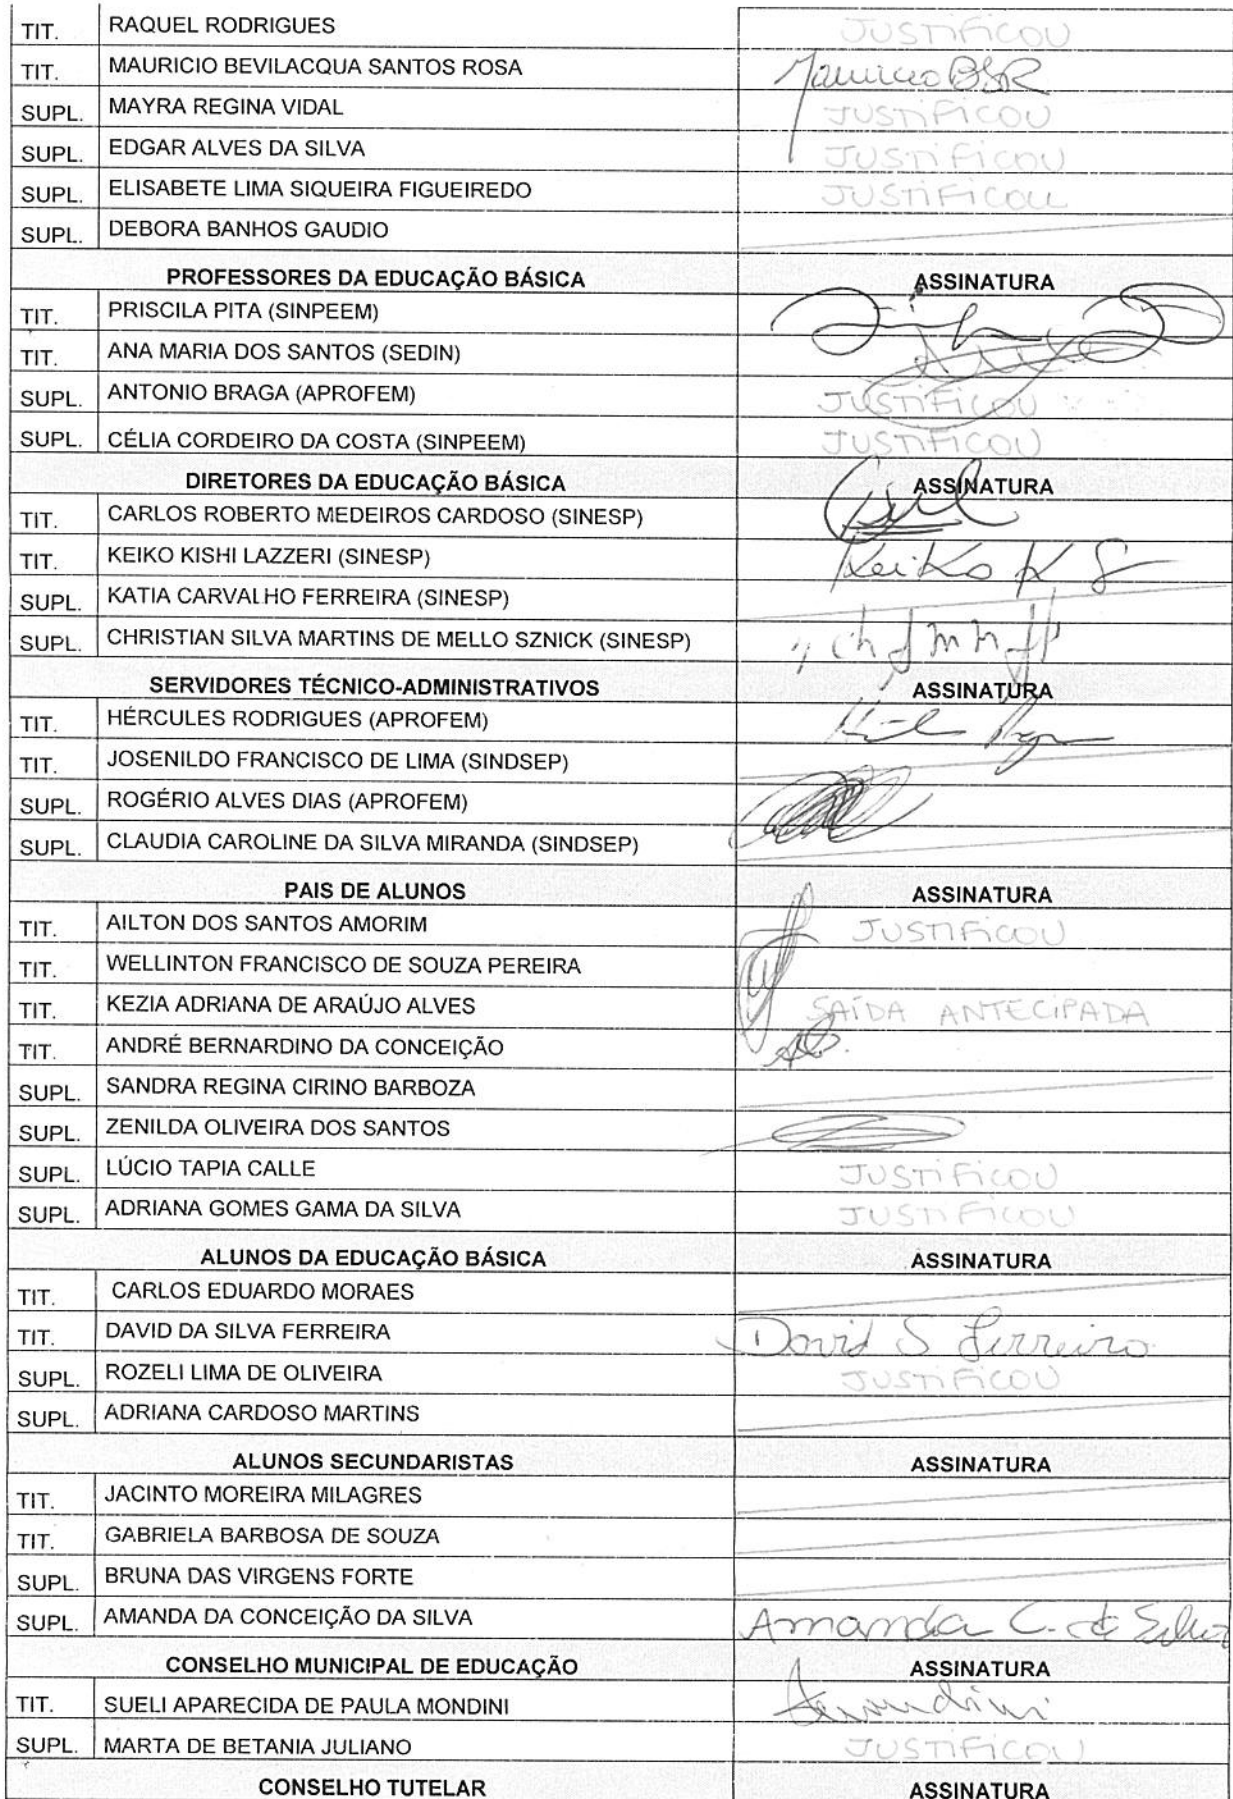 TIT. RAQUEL RODRIGUES JUSTIFICOU
TIT. MAURICIO BEVILACQUA SANTOS ROSA Mauricio BSR
SUPL. MAYRA REGINA VIDAL JUSTIFICOU
SUPL. EDGAR ALVES DA SILVA JUSTIFICOU
SUPL. ELISABETE LIMA SIQUEIRA FIGUEIREDO JUSTIFICOU
SUPL. DEBORA BANHOS GAUDIO
PROFESSORES DA EDUCAÇÃO BÁSICA ASSINATURA
TIT. PRISCILA PITA (SINPEEM)
TIT. ANA MARIA DOS SANTOS (SEDIN)
SUPL. ANTONIO BRAGA (APROFEM) JUSTIFICOU
SUPL. CÉLIA CORDEIRO DA COSTA (SINPEEM) JUSTIFICOU
DIRETORES DA EDUCAÇÃO BÁSICA ASSINATURA
TIT. CARLOS ROBERTO MEDEIROS CARDOSO (SINESP)
TIT. KEIKO KISHI LAZZERI (SINESP) Keiko K
SUPL. KATIA CARVALHO FERREIRA (SINESP)
SUPL. CHRISTIAN SILVA MARTINS DE MELLO SZNICK (SINESP)
SERVIDORES TÉCNICO-ADMINISTRATIVOS ASSINATURA
TIT. HÉRCULES RODRIGUES (APROFEM)
TIT. JOSENILDO FRANCISCO DE LIMA (SINDSEP)
SUPL. ROGÉRIO ALVES DIAS (APROFEM)
SUPL. CLAUDIA CAROLINE DA SILVA MIRANDA (SINDSEP)
PAIS DE ALUNOS ASSINATURA
TIT. AILTON DOS SANTOS AMORIM JUSTIFICOU
TIT. WELLINTON FRANCISCO DE SOUZA PEREIRA
TIT. KEZIA ADRIANA DE ARAÚJO ALVES SAÍDA ANTECIPADA
TIT. ANDRÉ BERNARDINO DA CONCEIÇÃO
SUPL. SANDRA REGINA CIRINO BARBOZA
SUPL. ZENILDA OLIVEIRA DOS SANTOS
SUPL. LÚCIO TAPIA CALLE JUSTIFICOU
SUPL. ADRIANA GOMES GAMA DA SILVA JUSTIFICOU
ALUNOS DA EDUCAÇÃO BÁSICA ASSINATURA
TIT. CARLOS EDUARDO MORAES
TIT. DAVID DA SILVA FERREIRA David S Ferreira
SUPL. ROZELI LIMA DE OLIVEIRA JUSTIFICOU
SUPL. ADRIANA CARDOSO MARTINS
ALUNOS SECUNDARISTAS ASSINATURA
TIT. JACINTO MOREIRA MILAGRES
TIT. GABRIELA BARBOSA DE SOUZA
SUPL. BRUNA DAS VIRGENS FORTE
SUPL. AMANDA DA CONCEIÇÃO DA SILVA Amanda C. da Silva
CONSELHO MUNICIPAL DE EDUCAÇÃO ASSINATURA
TIT. SUELI APARECIDA DE PAULA MONDINI
SUPL. MARTA DE BETANIA JULIANO JUSTIFICOU
CONSELHO TUTELAR ASSINATURA